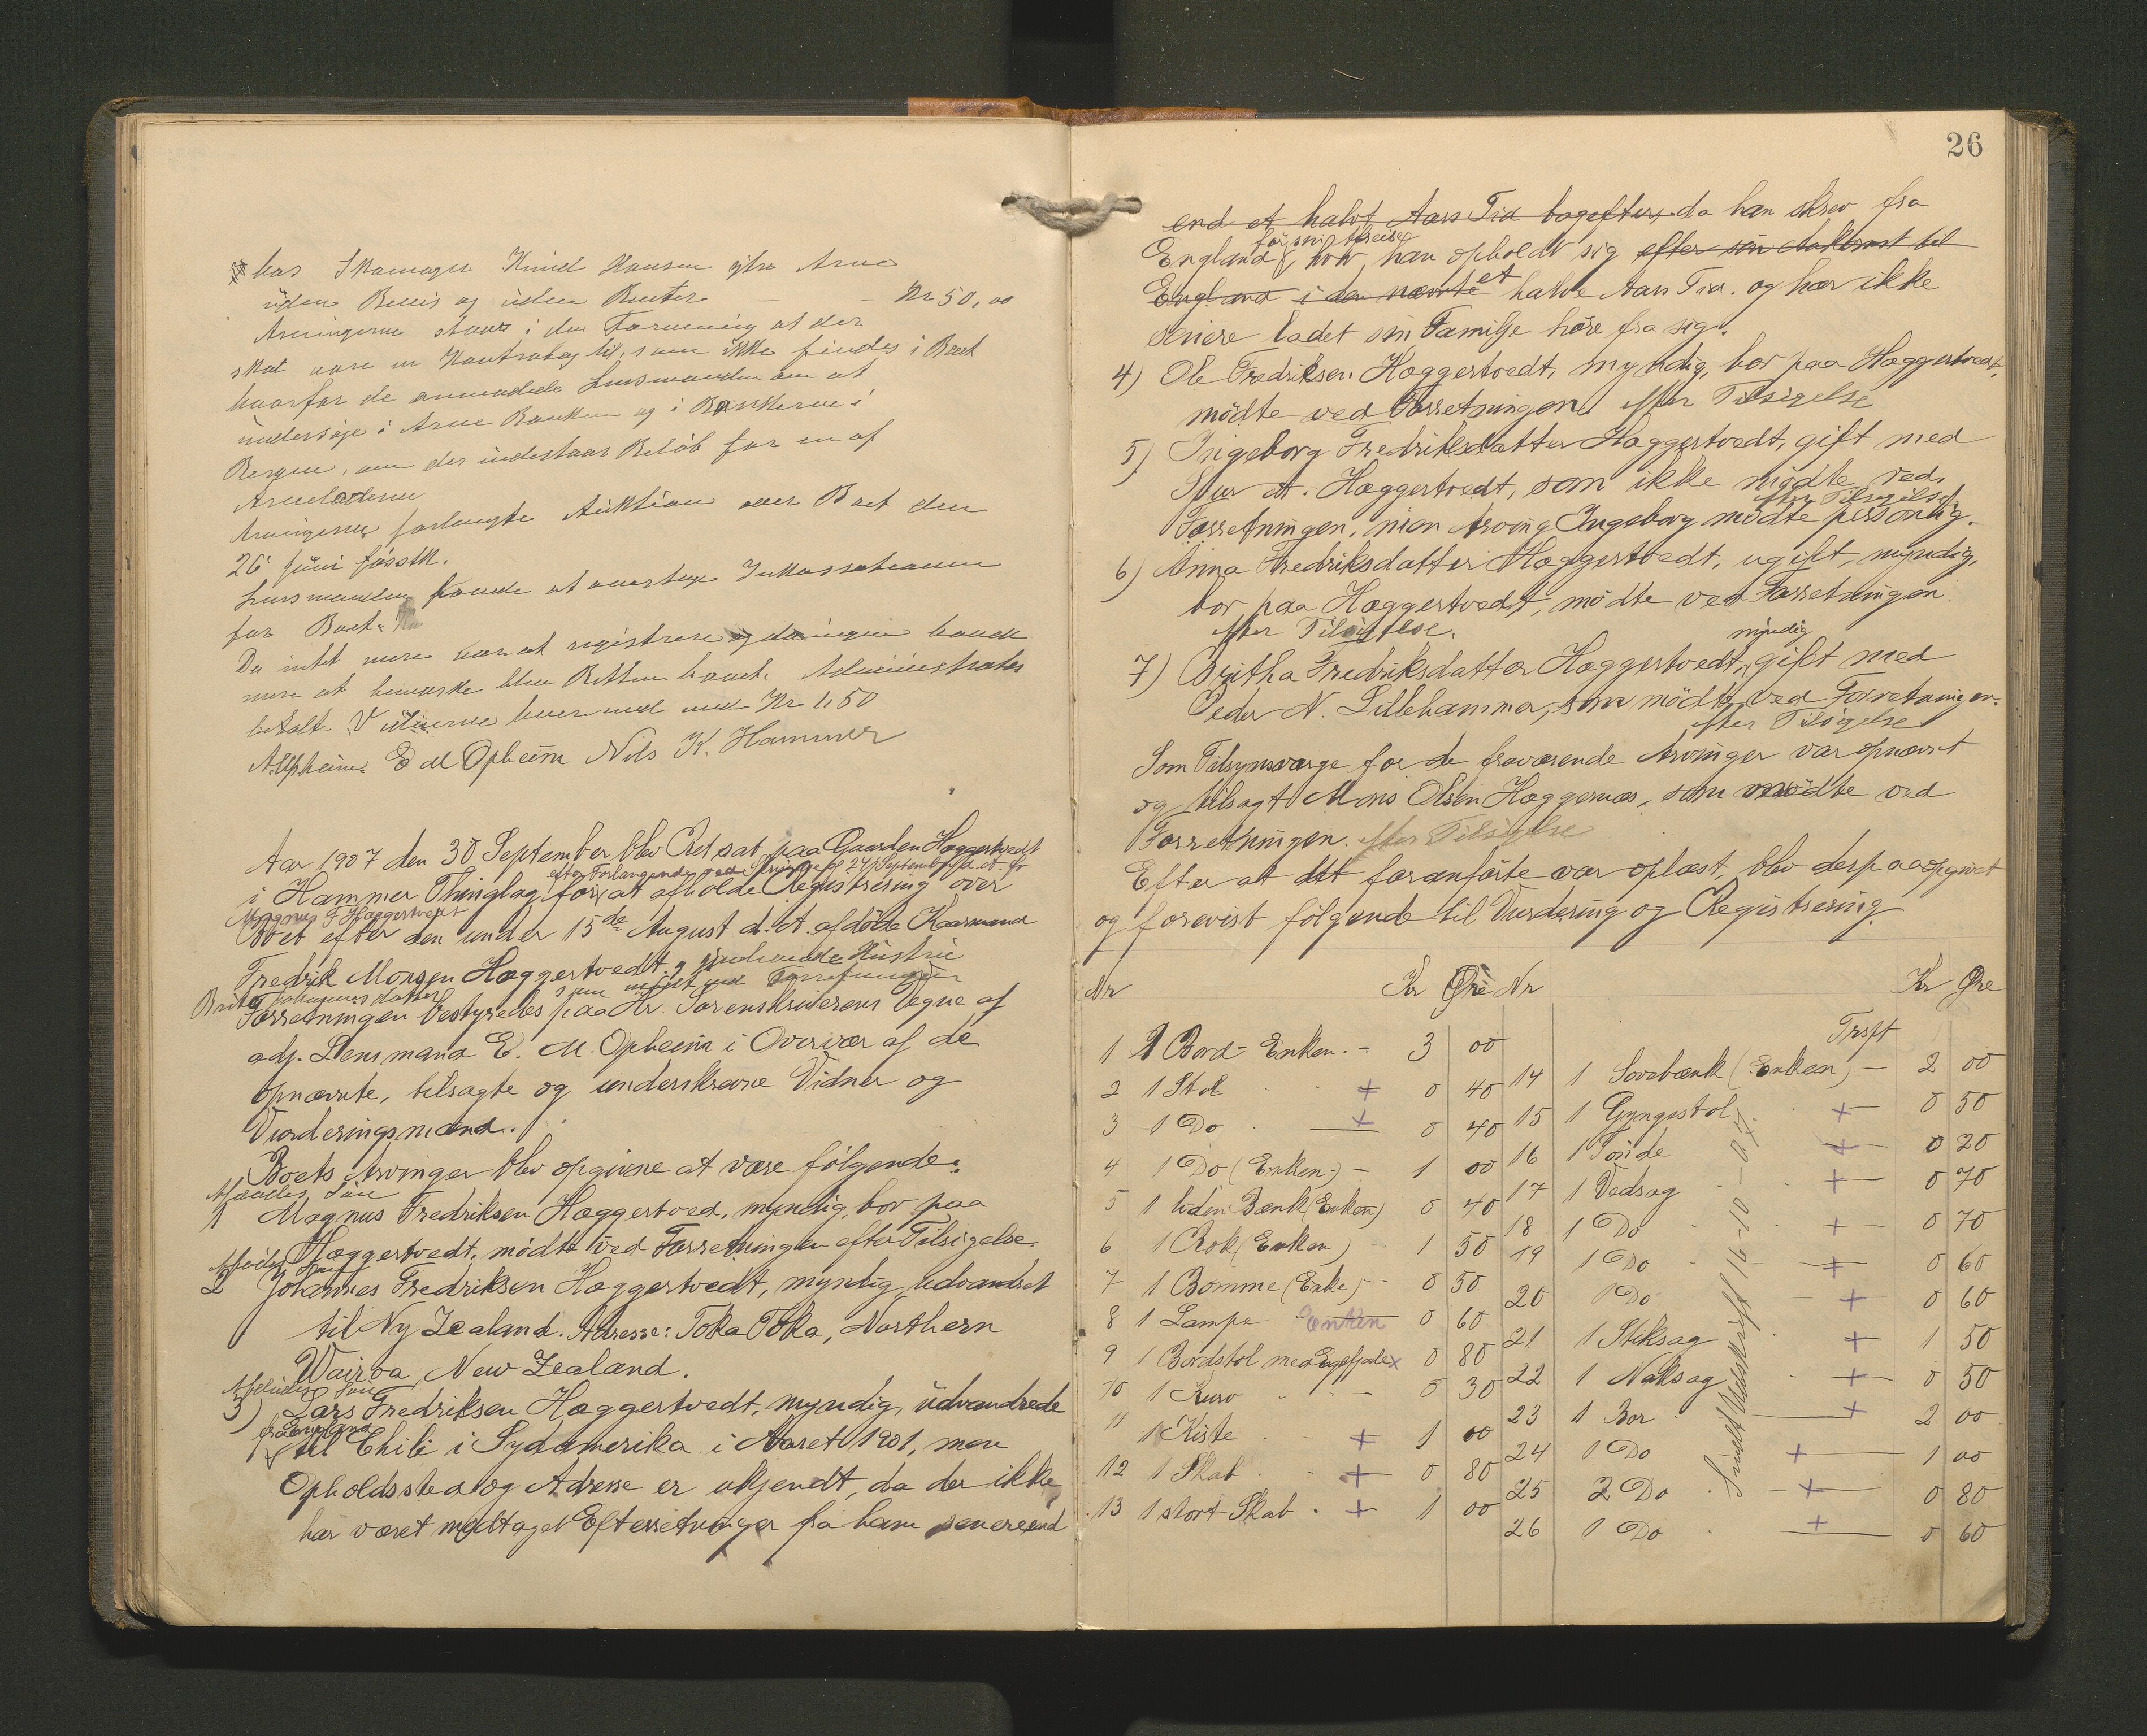 hos Skomager Knud Hansen ytre Arne
uden Bevis og uden Renter - - Kr 50,00
Arvingerne staar i den Formening at der
skal være en Kontrabog til, som ikke findes i Boet
hvorfor de anmodede Lensmanden om at
undersøge i Arne Banken og i Bankerne i
Bergen, om der indestaar Beløb for en af
Arveladerne
Arvingerne forlangte Auktion over Boet den
26 juni førstk.
Lensmanden havde at overtage Inkassationen
for Boet.
Da intet mere var at registrere og da ingen havde
mere at bemærke blev Retten hævet. Administrator
betalte Vidnerne hver ved med Kr 1,50
E M Opheim Nils K. Hammer
Aar 1907 den 30 September blev Ret sat paa Gaarden Haggertvedt
efter Forlangende 24 September
i Hammer Thinglag for at afholde Registrering over
Magnus F Haggertvedt
Boet efter den under 15de August d. A. afdøde Kaarmand
Fredrik Monsen Haggertvedt og gjenlevende Hustru
Brita Johannesdatter som mødte ved Forretningen
Forretningen bestyredes paa Hr. Sorenskriverens Vegne af
adj. Lensmand E. M. Opheim i Overvær af de
opnævnte, tilsagte og underskrevne Vidner og
Vurderingsmænd.
Boets Arvinger blev opgivne at være følgende:
Afdødes Søn
1 Magnus Fredriksen Haggertved, myndig, bor paa
Haggertvedt, mødte ved Forretningen efter Tilsigelse.
Afdødes Søn
2 Johannes Fredriksen Haggertvedt, myndig, udvandret
til Ny Zealand. Adresse: Toka Toka, Northern
Wairoa, New Zealand.
Afdødes Søn
3) Lars Fredriksen Haggertvedt, myndig, udvandrede
fra England
til Chili i Sydamerika i Aaret 1901, men
Opholdssted og Adresse er ukjendt, da der ikke
har været modtaget Efterretninger fra ham senere end
26
end et halvt Aars Tid bagefter, da han skrev fra
før sin Afreise
England, hvor han opholdt sig efter sin Ankomst til
England i den nævnte et halve Aars Tid. og har ikke
senere ladet sin Familje høre fra sig.
4) Ole Fredriksen Haggertvedt, myndig, bor paa Haggertvedt,
mødte ved Forretningen efter Tilsigelse
5) Ingeborg Fredriksdatter Haggertvedt, gift med
A. Haggertvedt, som ikke mødte ved
efter Tilsigelse
Forretningen, men Arving Ingeborg mødte personlig.
6) Anna Fredriksdatter Haggertvedt, ugift, myndig,
bor paa Haggertvedt, mødte ved Forretningen
efter Tilsigelse.
myndig
7) Britha Fredriksdatter Haggertvedt, gift med
Peder N. Lillehammer, som mødte ved Forretningen.
efter Tilsigelse
Som Tilsynsværge for de fraværende Arvinger var opnævnt
og tilsagt Mons Olsen Haggernæs, som mødte ved
Forretningen. efter Tilsigelse
Efter at det foranførte var oplæst, blev derpaa opgivet
og forevist følgende til Vurdering og Registrering.
Nr Kr Øre Nr Kr Øre
Trsft
1 1 Bord - Enken. - 3 00
2 1 Stol + 0 40
3 1 Do + 0 40
4 1 Do (Enken) - 1 00
5 1 liden Bænk (Enken) 0 40
6 1 Rok (Enken) - 1 50
7 1 Bomme (Enke) - 0 50
8 1 Lampe Enken 0 60
9 1 Bordstol med x 0 80
10 1 Kurv - 0 30
11 1 Kiste + 1 00
12 1 Skab + 0 80
13 1 stort Skab + 1 00
14 1 Sovebænk (Enken) - 2 00
15 1 Gyngestol + 0 50
16 1 Tønde + 0 20
17 1 Vedsag + 0 70
18 1 Do + 0 70
19 1 Do + 0 60
20 1 Do + 0 60
21 1 Stiksag + 1 50
22 1 Naksag + 0 50
23 1 Bor + 2 00
24 1 Do + 1 00
25 2 Do + 0 80
26 1 Do + 0 60